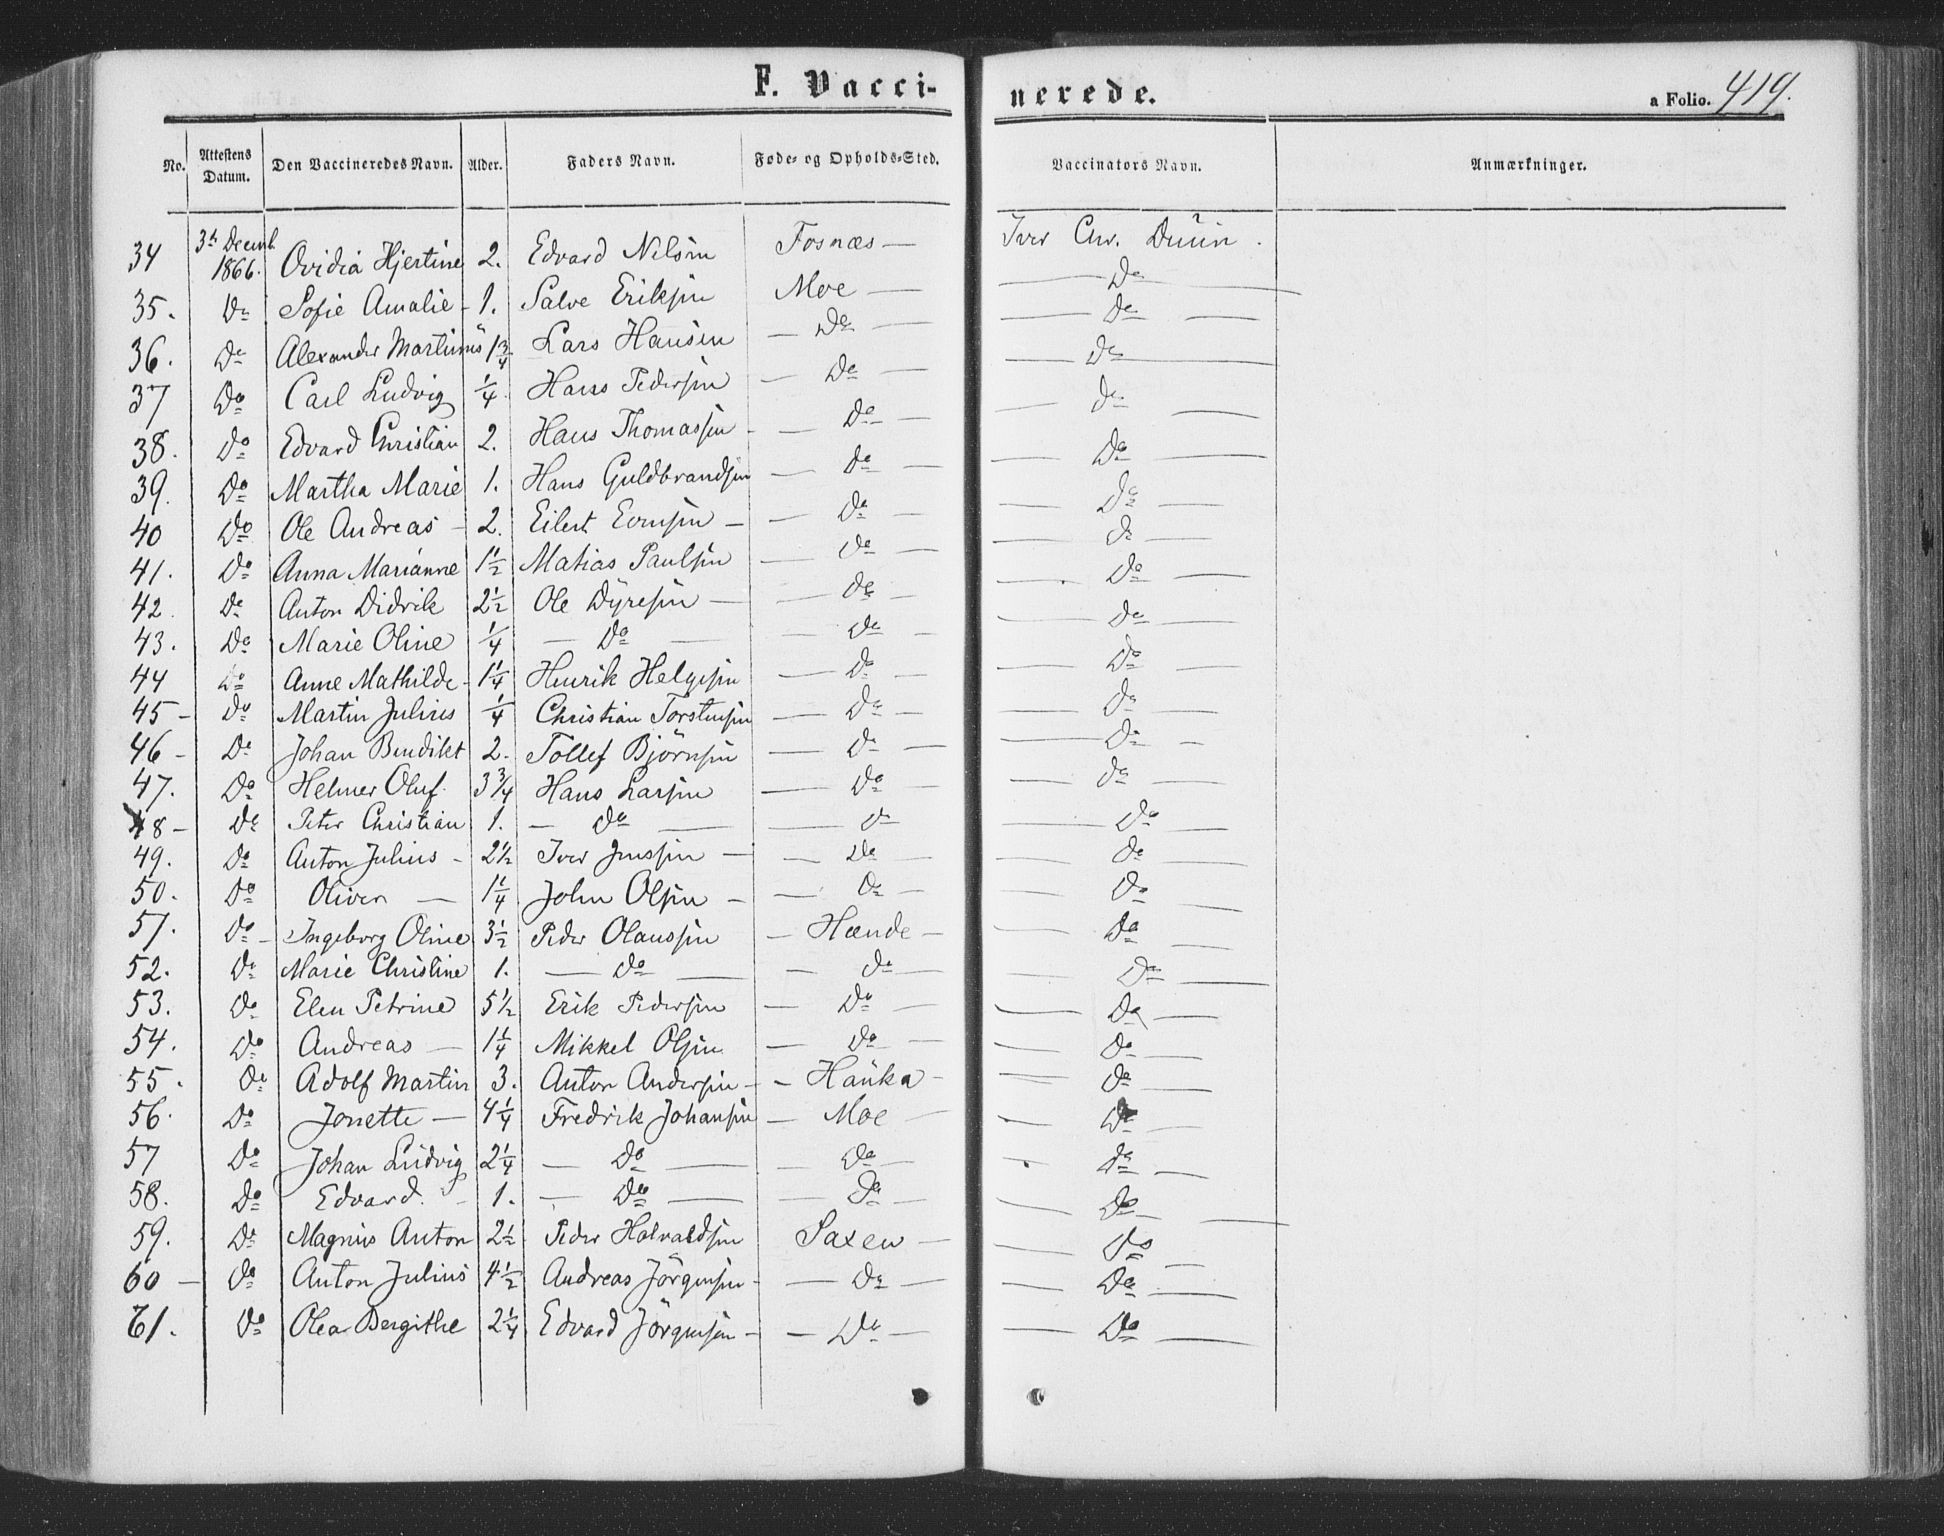 F. Vacci-nerede. a Folio. 419.
No. Attestens Datum. Den Vaccineredes Navn. Alder. Faders Navn. Føde- og Opholds-Sted. Vaccinators Navn. Anmærkninger.
34 3h Decemb. 1866. Ovidia Hjertine 2. Edvard Nilsen Fosnæs — Iver Chr. Duun.
35. Do Sofie Amalie - 1. Salve Eriksen Moe — — Do —
36. Do Alexander Martinus 1 3/4 Lars Hansen — Do — — Do —
37 Do Carl Ludvig 1/4. Hans Pedersen — Do — — Do —
38. Do Edvard Christian 2. Hans Thomassen — Do — — Do —
39. Do Martha Marie 1. Hans Guldbrandsen — Do — — Do —
40 Do Ole Andreas — 2. Eilert Evensen — — Do — — Do —
41. Do Anna Marianne 1 1/2 Matias Paulsen — Do — — Do —
42. Do Anton Didrik 2 1/2 Ole Dyresen — — Do — — Do —
43. Do Marie Oline 1/4 — Do — — Do — — Do —
44 Do Anne Mathilde - 1 1/4 Henrik Helgesen — Do — — Do —
45 - Do Martin Julius 1/4 Christian Torstensen — Do — — Do —
46 - Do Johan Bendikt 2. Tollef Björnsen — Do — — Do —
47. Do Helmer Oluf. 3 3/4 Hans Larsen — Do — — Do —
48 - Do Peter Christian 1. — Do — — Do — Do —
49. Do Anton Julius - 2 1/2 Iver Jenssen — — Do — — Do —
50. Do Oliver — 1 1/4 John Olsen — — Do — — Do —
51. Do - Ingeborg Oline 3 1/2 Peder Olaussen — Hænde — — Do —
52. Do Marie Christine 1. — Do — — Do — — Do —
53. Do Elen Petrine 5 1/2 Erik Pedersen — Do — — Do —
54. Do Andreas — 1 1/4 Mikkel Olsen — Do — — Do —
55. Do Adolf Martin 3. Anton Andersen — - Hauka - — Do —
56. Do Jonette — 4 1/4 Fredrik Johansen — Moe — — Do —
57 Do Johan Ludvig 2 1/4 — Do — — Do — — Do —
58. Do Edvard. - 1. — Do — — Do — — Do —
59. Do Magnus Anton 2 1/2 Peder Halvaldsen Saxen — — Do —
60 — Do Anton Julius 4 1/2 Andreas Jörgensen - — Do — — Do —
61. Do Olea Bergithe 2 1/4 Edvard Jörgensen — — Do — — Do —